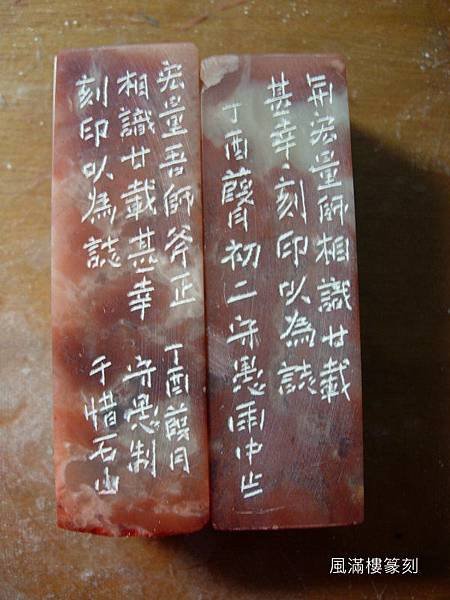 宏量師相識廿載
甚幸刻印以為誌
丁酉葭月初二守愚雨中
宏量吾師斧正
相識廿載甚幸
刻印以為誌
丁酉葭月
守愚制
于惜石山
風滿樓篆刻